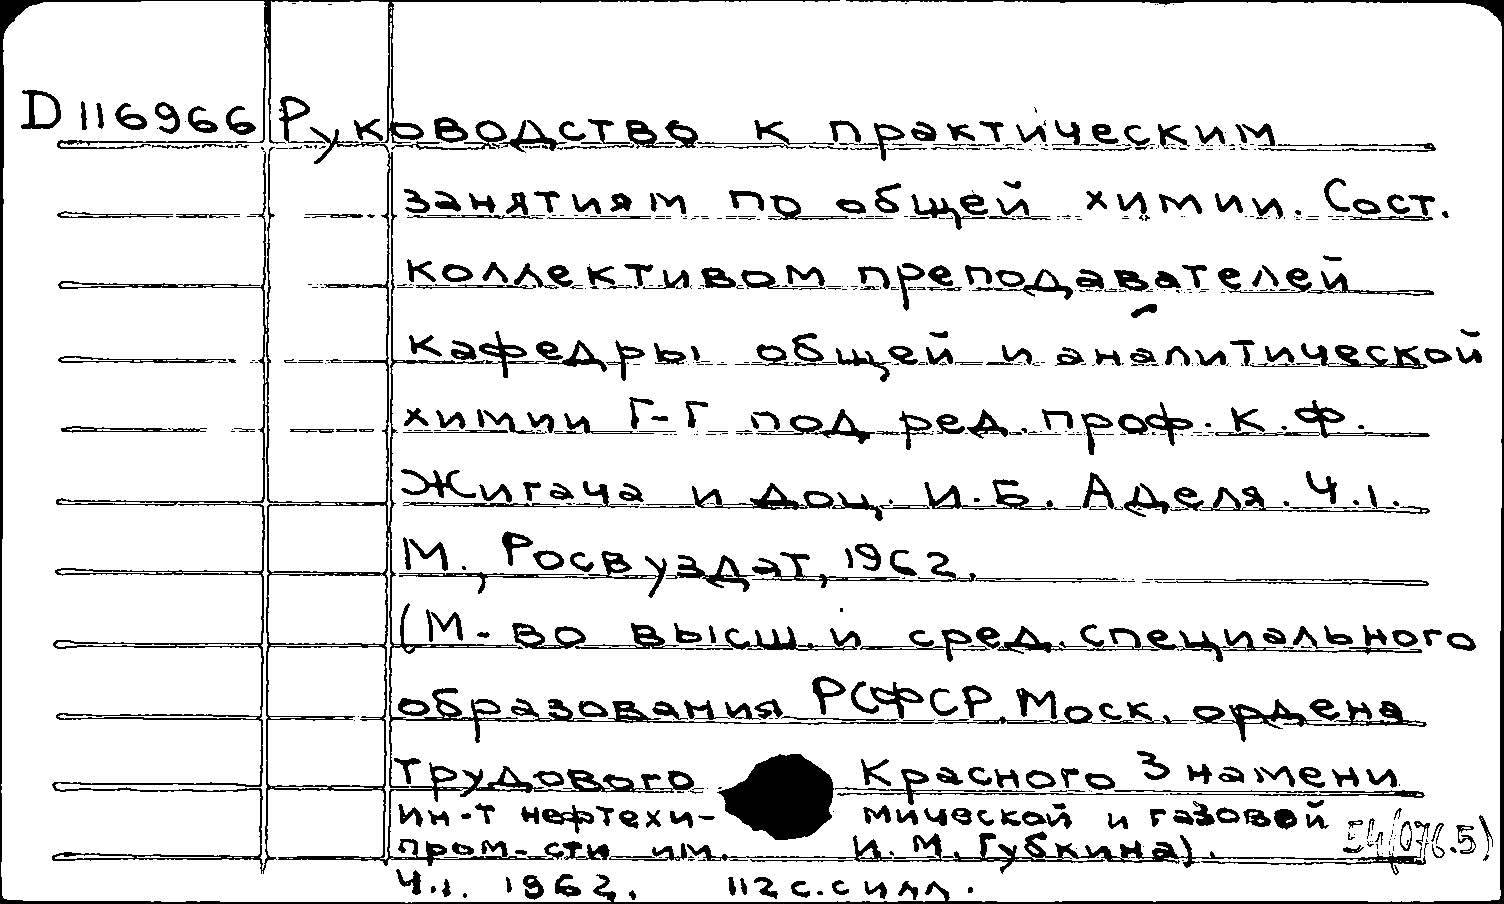 D 116966 Руководство к практическим
занятиям по общей химии. Сост.
коллективом преподавателей
кафедры общей и аналитической
химии Г-Г под ред. проф. К. Ф.
Жигача и доц. И. Б. Аделя. Ч.1.
М., Росвуздат, 1962.
(М-во высш. и сред. специального
образования РСФСР. Моск. ордена
Трудового Красного Знамени
ин-т нефтехимической и газовой
пром-сти им. И. М. Губкина).
54(076.5)
Ч.1. 1962. 112 с. с илл.